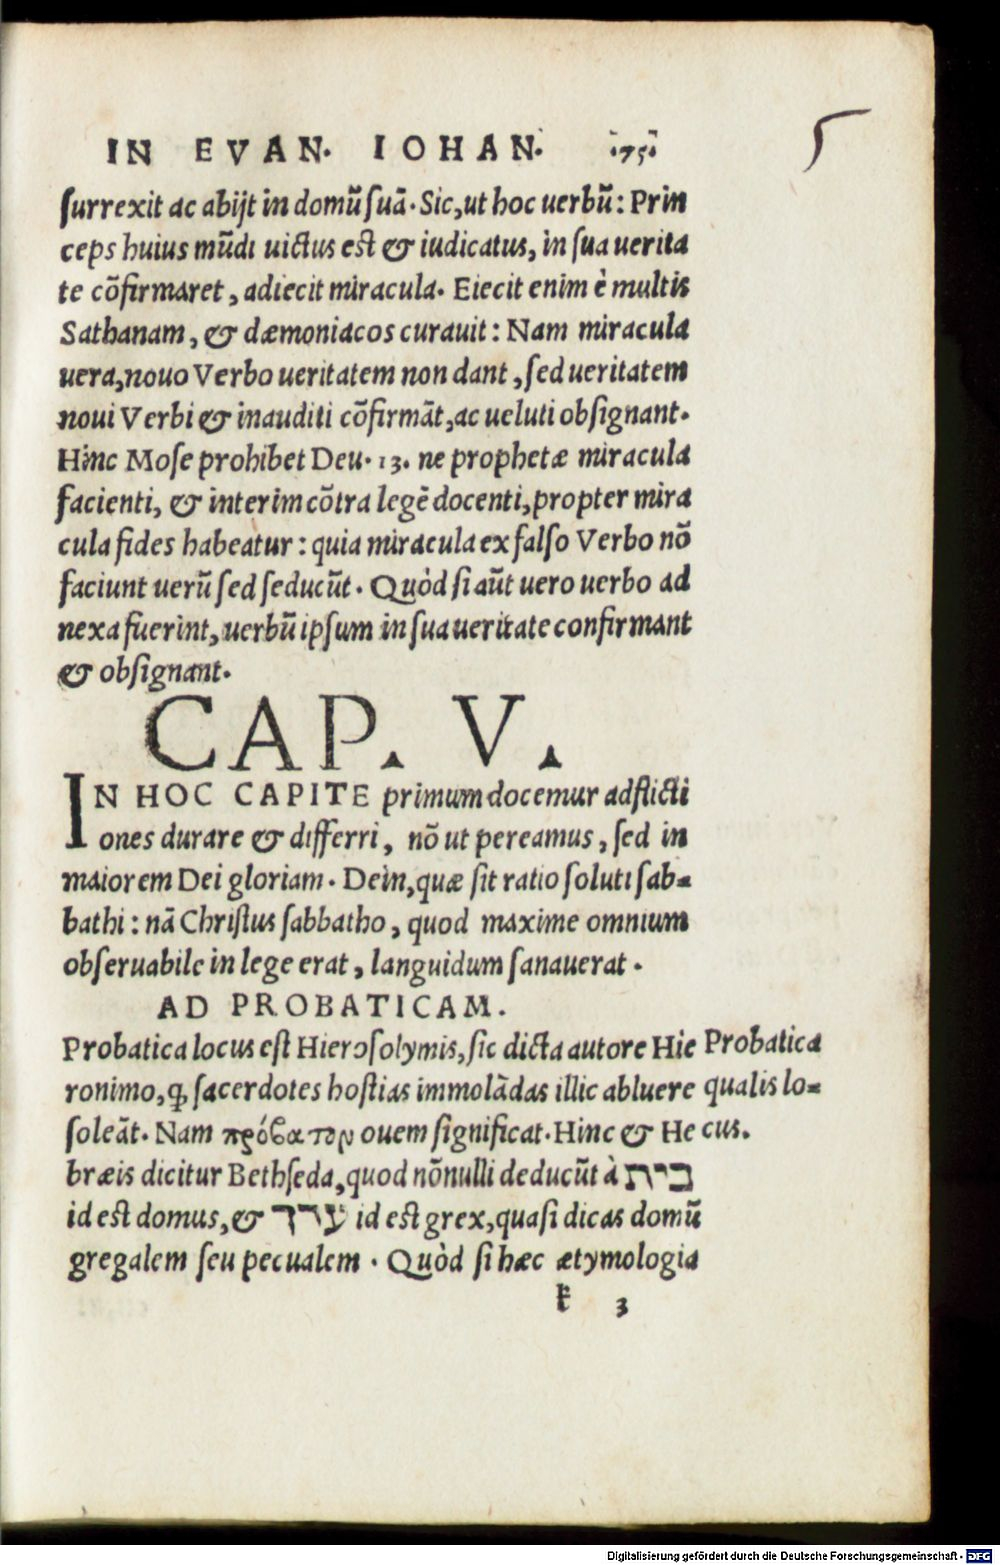 IN EVAN. IOHAN. .75. 5
surrexit ac abijt in domũ suã. Sic, ut hoc uerbũ: Prin
ceps huius mũdi uictus est & iudicatus, in sua uerita
te cõfirmaret, adiecit miracula. Eiecit enim è multis
Sathanam, & dæmoniacos curauit: Nam miracula
uera, nouo Verbo ueritatem non dant, sed ueritatem
noui Verbi & inauditi cõfirmãt, ac ueluti obsignant.
Hinc Mose prohibet Deu. 13. ne prophetæ miracula
facienti, & interim cõtra legẽ docenti, propter mira
cula fides habeatur: quia miracula ex falso Verbo nõ
faciunt uerũ sed seducũt. Quòd si aũt uero uerbo ad
nexa fuerint, uerbũ ipsum in sua ueritate confirmant
& obsignant.
CAP. V.
IN HOC CAPITE primum docemur adflicti
ones durare & differri, nõ ut pereamus, sed in
maiorem Dei gloriam. Dein, quæ sit ratio soluti sab-
bathi: nã Christus sabbatho, quod maxime omnium
obseruabile in lege erat, languidum sanauerat.
AD PROBATICAM.
Probatica locus est Hierosolymis, sic dicta autore Hie Probatica
ronimo, ꝙ sacerdotes hostias immolãdas illic abluere qualis lo-
soleãt. Nam πρόβατον ouem significat. Hinc & He cus.
bræis dicitur Bethseda, quod nõnulli deducũt à בית
id est domus, & ערך id est grex, quasi dicas domũ
gregalem seu pecualem. Quòd si hæc ætymologia
k 3
Digitalisierung gefördert durch die Deutsche Forschungsgemeinschaft - DFG